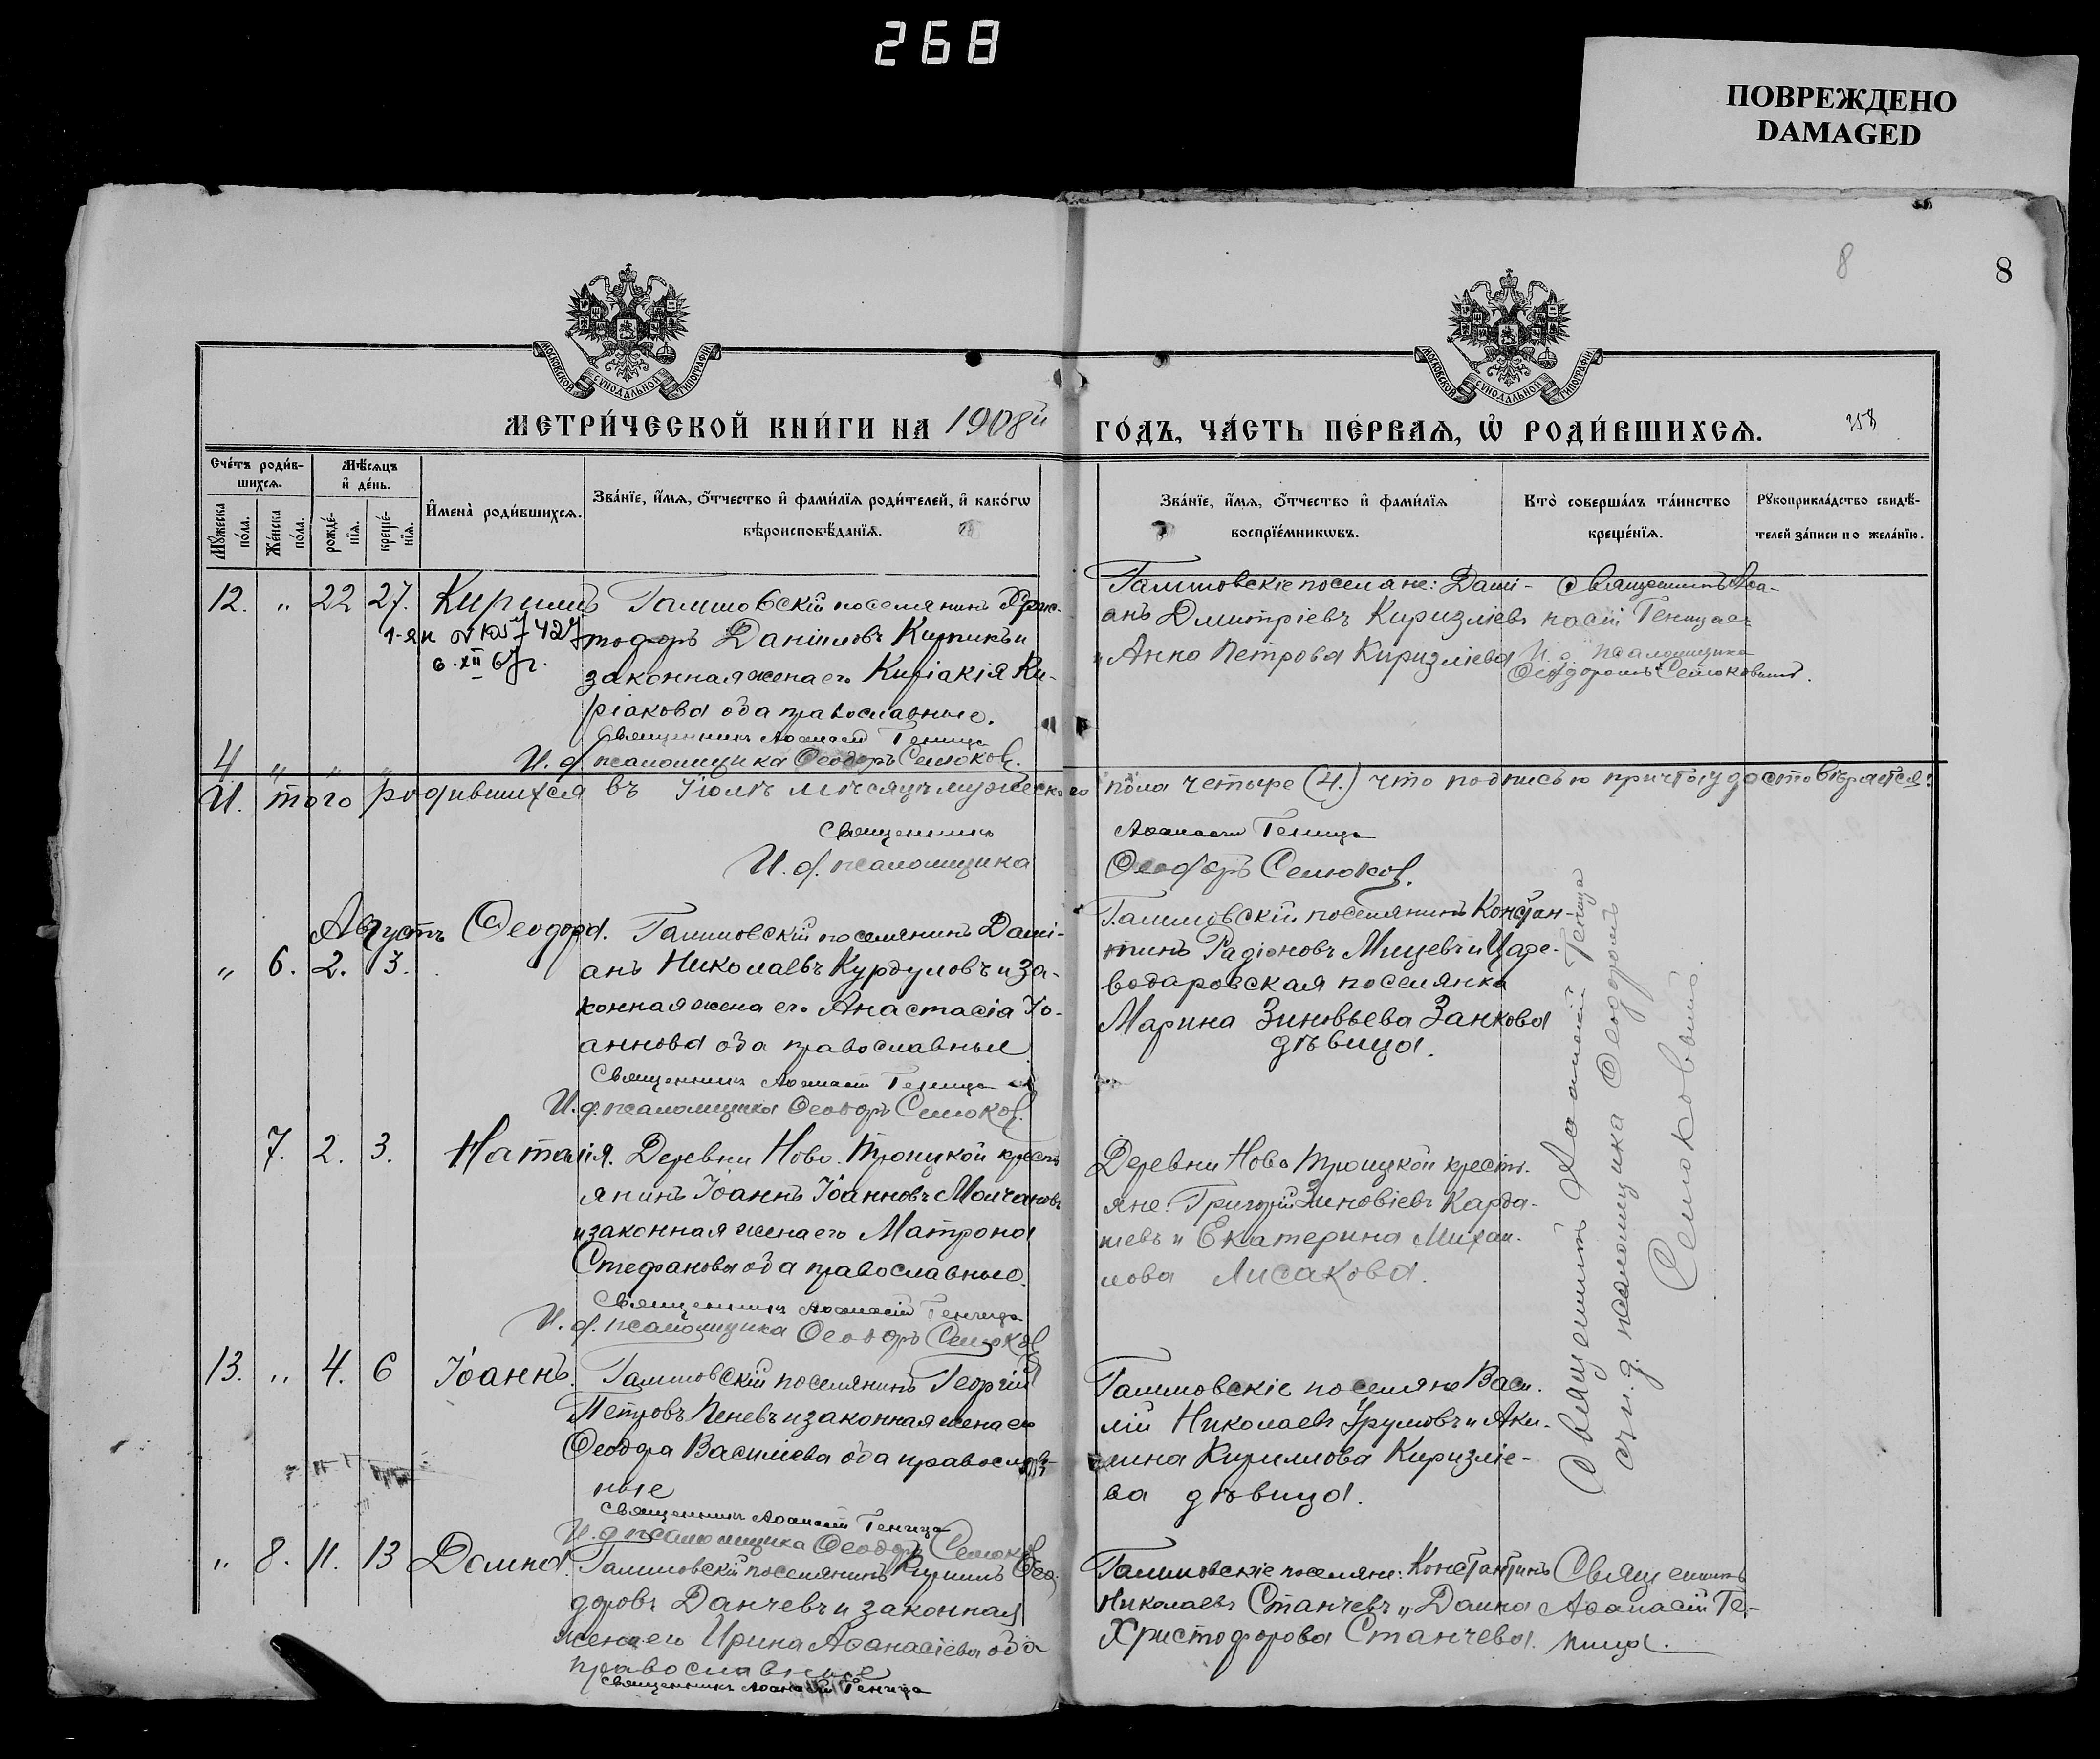 268
ПОВРЕЖДЕНО
DAMAGED
8
8
МОСКОВСКОЙ СУНОДАЛЬНОЙ ТИПОГРАФІИ
МОСКОВСКОЙ СУНОДАЛЬНОЙ ТИПОГРАФІИ
МЕТРИ́ЧЕСКОЙ КНИ́ГИ НА 1908й
ГО́ДЪ, ЧА́СТЬ ПЕ́РВАѦ, Ѡ҆ РОДИ́ВШИХСѦ.
Сче́тъ роди́в-
шихсѧ.
Мѣ́сѧцъ
и҆ де́нь.
Мꙋ́жеска по́ла.
Же́нска по́ла.
рожде́-
нїѧ.
креще́-
нїѧ.
И҆мена̀ роди́вшихсѧ.
Зва́нїе, и҆́мѧ, ѻ҆́тчество и҆ фами́лїѧ роди́телей, и҆ како́гѡ
вѣроисповѣ́данїѧ.
Зва́нїе, и҆́мѧ, ѻ҆́тчество и҆ фами́лїѧ
воспрїе́мникѡвъ.
Кто̀ соверша́лъ та́инство
креще́нїѧ.
Рꙋкоприкла́дство свидѣ́-
телей за́писи по жела́нїю.
12. " 22 27. Кириллъ
6. XII 67г.
Галицовскій поселянинъ Хрис-
тофоръ Даниловъ Кирпикъ и
законная жена его Киріакія Ки-
ріакова оба православные.
Священникъ Аѳанасій Теница
И. д. псаломщика Ѳеодоръ Семюков.
Галицовскіе поселяне: Дамі-
анъ Дмитріевъ Киризліевъ
и Анна Петрова Киризліева
Священникъ Аѳа-
насій Теница съ
И. д. псаломщика
Ѳеодоромъ Семюковымъ.
4 " " "
И. того родившихся въ Іюлѣ мѣсяцѣ мужеского пола четыре (4.) что подписью причта удостовѣряется:
Священникъ Аѳанасій Теница
И. д. псаломщика Ѳеодоръ Семюков.
Августъ
" 6. 2. 3. Ѳеодора.
Галицовскій поселянинъ Дамі-
анъ Николаевъ Курдуловъ и за-
конная жена его Анастасія Іо-
аннова оба православные
Священникъ Аѳанасій Теница
И. д. псаломщика Ѳеодоръ Семюков.
Галицовскій поселянинъ Констан-
тинъ Радіоновъ Мицевъ и Царе-
водаровская поселянка
Марина Зиновьева Занкова
дѣвица.
Священникъ Аѳанасій Теница
съ и. д. псаломщика Ѳеодоромъ
Семюковымъ.
7. 2. 3. Наталія.
Деревни Ново. Троицкой кресть
янинъ Іоаннъ Іоанновъ Молчановъ
и законная жена его Матрона
Стефанова оба православные.
Священникъ Аѳанасій Теница
И. д. псаломщика Ѳеодоръ Семюков
Деревни Ново Троицкой кресть.
яне: Григорій Зиновіевъ Карда-
шевъ и Екатерина Михаи-
лова Лисакова.
13. " 4. 6 Іоаннъ.
Галицовскій поселянинъ Георгій
Петровъ Пеневъ и законная жена его
Ѳеодора Василіева оба православ-
ные
Священникъ Аѳанасій Теница
И. д. псаломщика Ѳеодоръ Семюков
Галицовскіе поселяне Васи-
лій Николаевъ Урумовъ и Аки-
лина Кириллова Киризліе-
ва дѣвица.
" 8. 11. 13 Домна.
Галицовскій поселянинъ Кириллъ Ѳео-
доровъ Данчевъ и законная
жена его Ирина Аѳанасіева оба
православные
Священникъ Аѳанасій Теница
Галицовскіе поселяне: Константинъ
Николаевъ Станчевъ и Домна
Христофорова Станчева.
Священникъ
Аѳанасій Те-
ница.